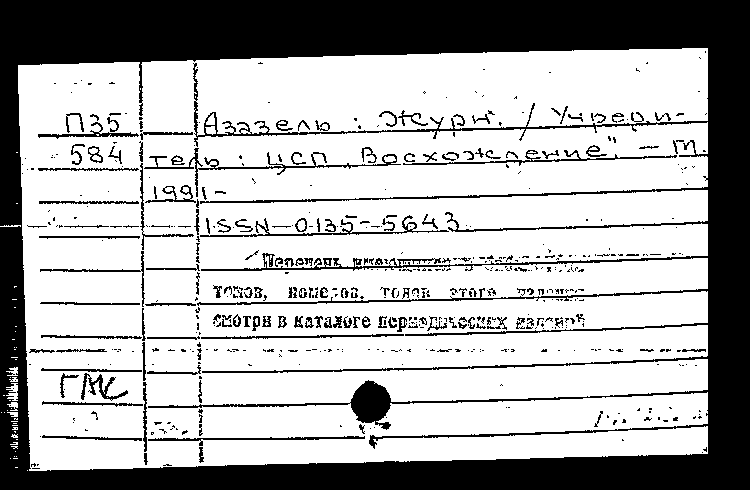 П35 Азазель : Журн. / Учреди-
584 тель : ЦСП „Восхождение". – М.
1991-
ISSN-0135-5643
Перечень имеющихся в
томов, номеров, годов этого издания
смотри в каталоге периодических изданий
ГМС